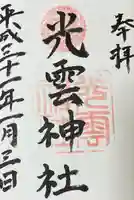 奉拝
光雲神社
平成三十一年一月三日